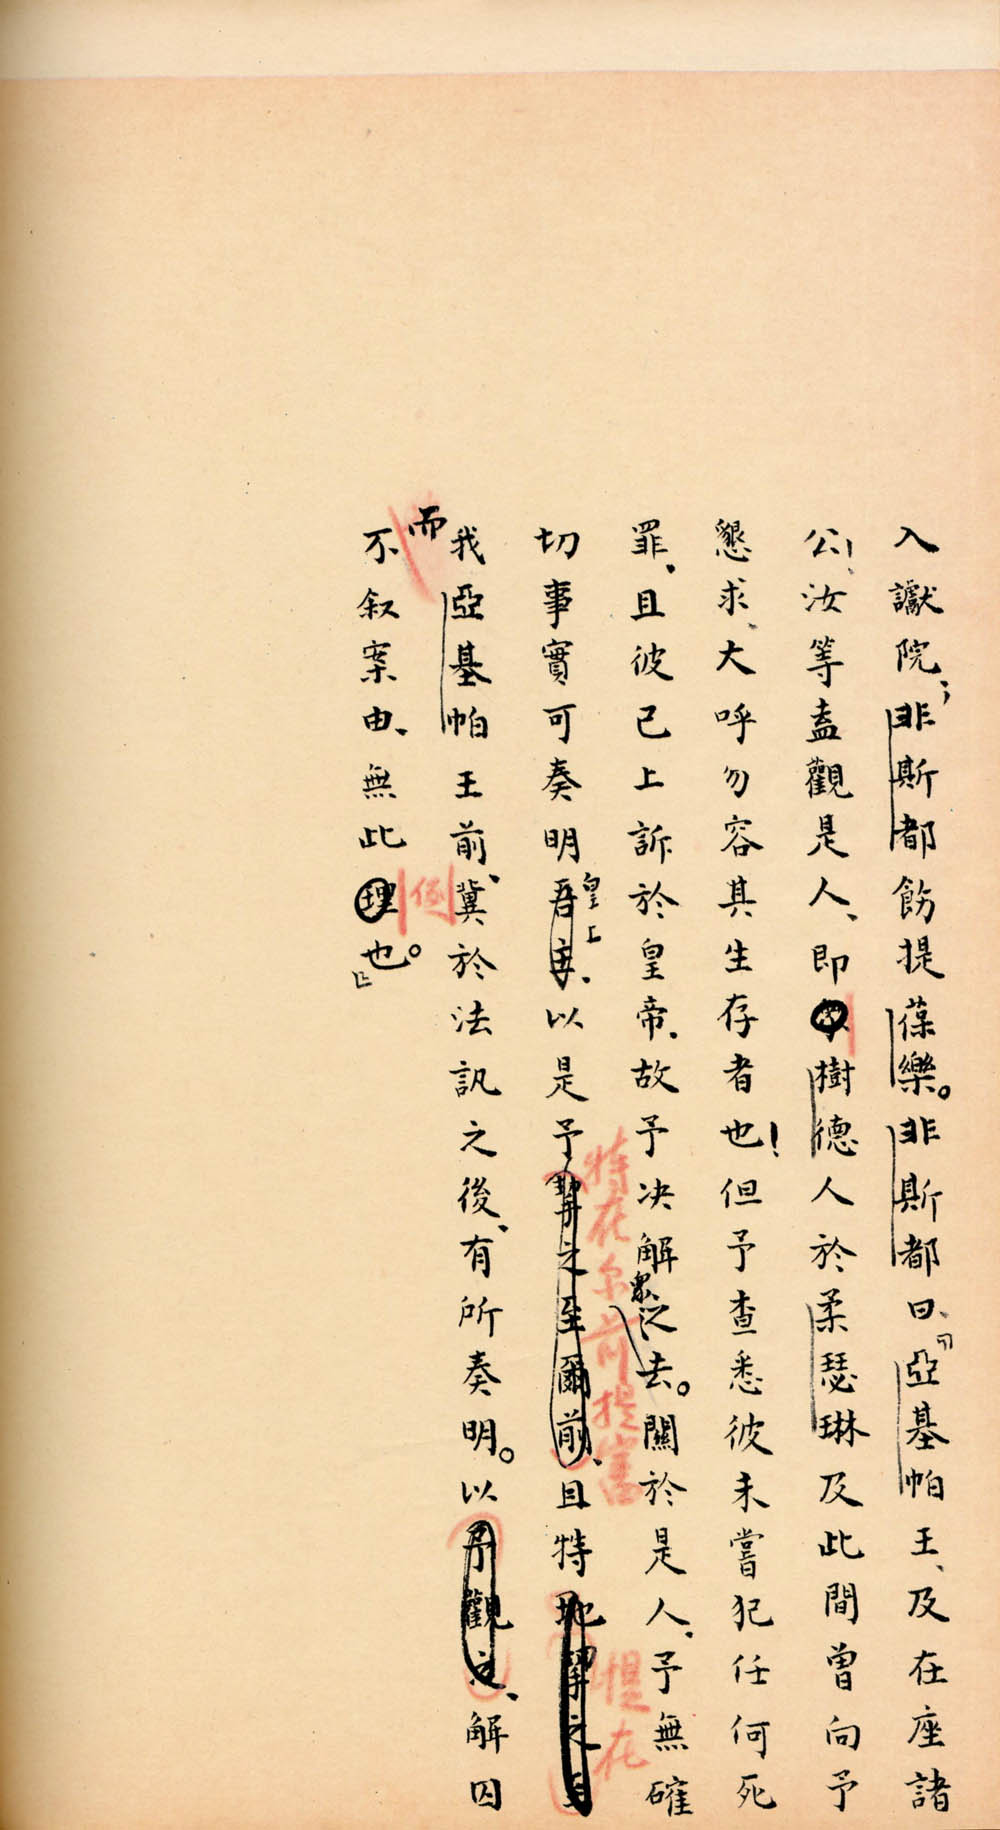 入讞院；非斯都飭提葆樂。非斯都曰、「亞基帕王、及在座諸
公！汝等盍觀是人、即樹德人於柔瑟琳及此間曾向予
懇求、大呼勿容其生存者也！但予查悉彼未嘗犯任何死
罪、且彼已上訴於皇帝、故予决解
彙
之去。關於是人、予無確
切事實可奏明吾主、以是予挈之至爾前、且特地挈之至
皇上
特在尔前提審
提在
我亞基帕王前、冀於法訊之後、有所奏明。以予觀之、解囚
而
例
不叙案由、無此理也。」